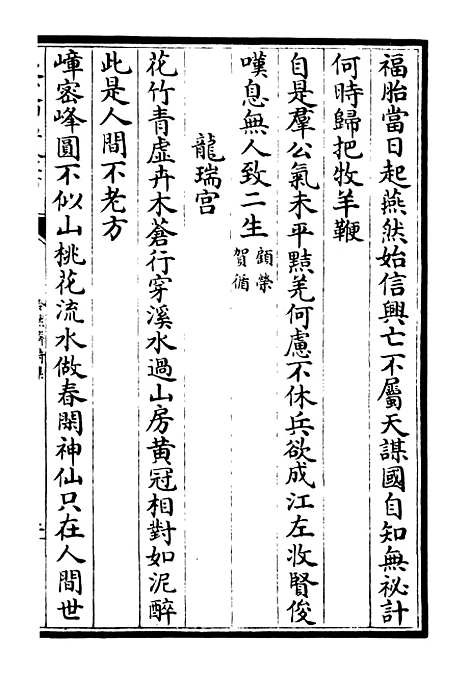 福胎當日起燕然始信興亡不屬天謀國自知無祕計
何時歸把牧羊鞭
自是羣公氣未平㸃羌何慮不休兵欲成江左收賢俊
嘆息無人致二生
顧榮
賀循
龍瑞宫
花竹青虛卉木蒼行穿溪水過山房黃冠相對如泥醉
此是人間不老方
嶂密峰圓不似山桃花流水做春閒神仙只在人間世